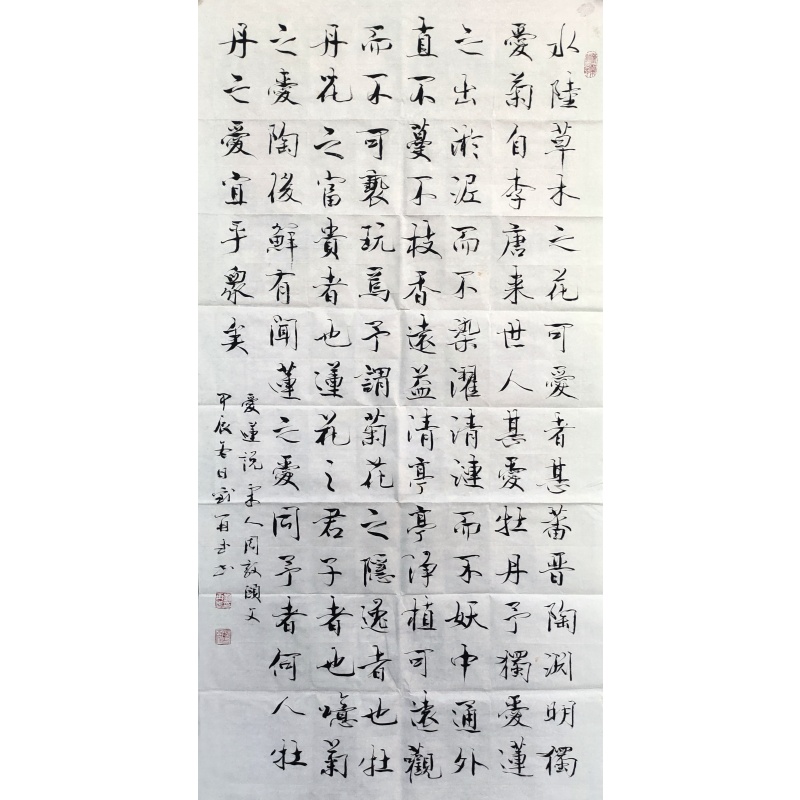 水陸草木之花可愛者甚蕃晉陶渊明獨
愛菊自李唐来世人甚愛牡丹予獨愛蓮
之出淤泥而不染濯清漣而不妖中通外
直不蔓不枝香遠益清亭亭浄植可遠觀
而不可褻玩焉予謂菊花之隱逸者也牡
丹花之富貴者也蓮花之君子者也噫菊
之愛陶後鮮有聞蓮之愛同予者何人牡
丹之愛宜乎衆矣
愛蓮説宋人周敦頤文
甲辰春日